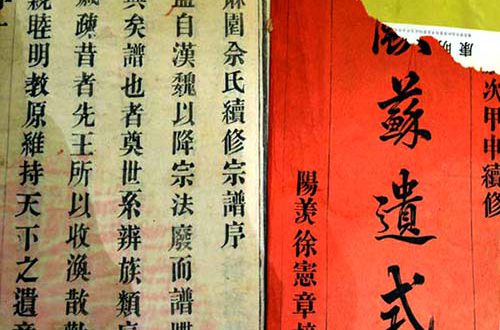 次甲申續修
蘇遺式
陽羨徐憲章
麻園佘氏續修宗譜序
自漢魏以降宗法廢而譜
矣譜也者奠世系辨族類
疎昔者先王所以收渙散
親睦明教原維持天下之遺意